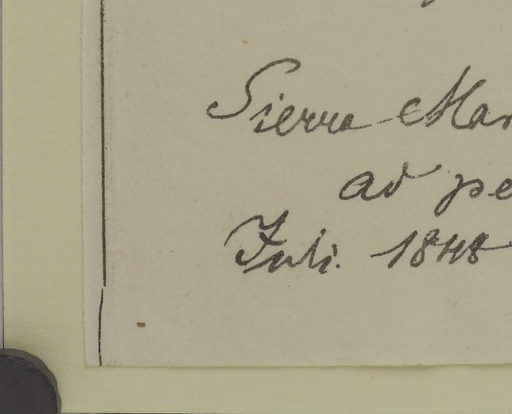 Sierra Mar
ad pe
Juli. 1848